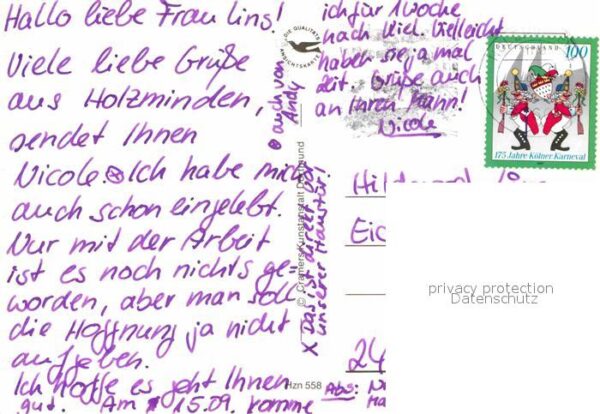 Hallo liebe Frau Lins!
Viele liebe Grüße
aus Holzminden,
sendet Ihnen
Nicole ⊗ Ich habe mich
auch schon eingelebt.
Nur mit der Arbeit
ist es noch nichts ge=
worden, aber man soll
die Hoffnung ja nicht
aufgeben.
Ich hoffe es geht Ihnen
gut. Am 15.09. komme
ich für 1 Woche
nach Kiel. Vielleicht
haben sie ja mal
Zeit. Grüße auch
an Ihren Mann!
Nicole
⊗ auch von
Andy
X Das ist direkt vor
unserer Haustür!
DIE QUALITÄTS
ANSICHTSKARTE
© Cramers Kunstanstalt Dortmund
Hzn 558
DEUTSCHLAND 100
175 Jahre Kölner Karneval
Eic
24
Abs:
privacy protection
Datenschutz